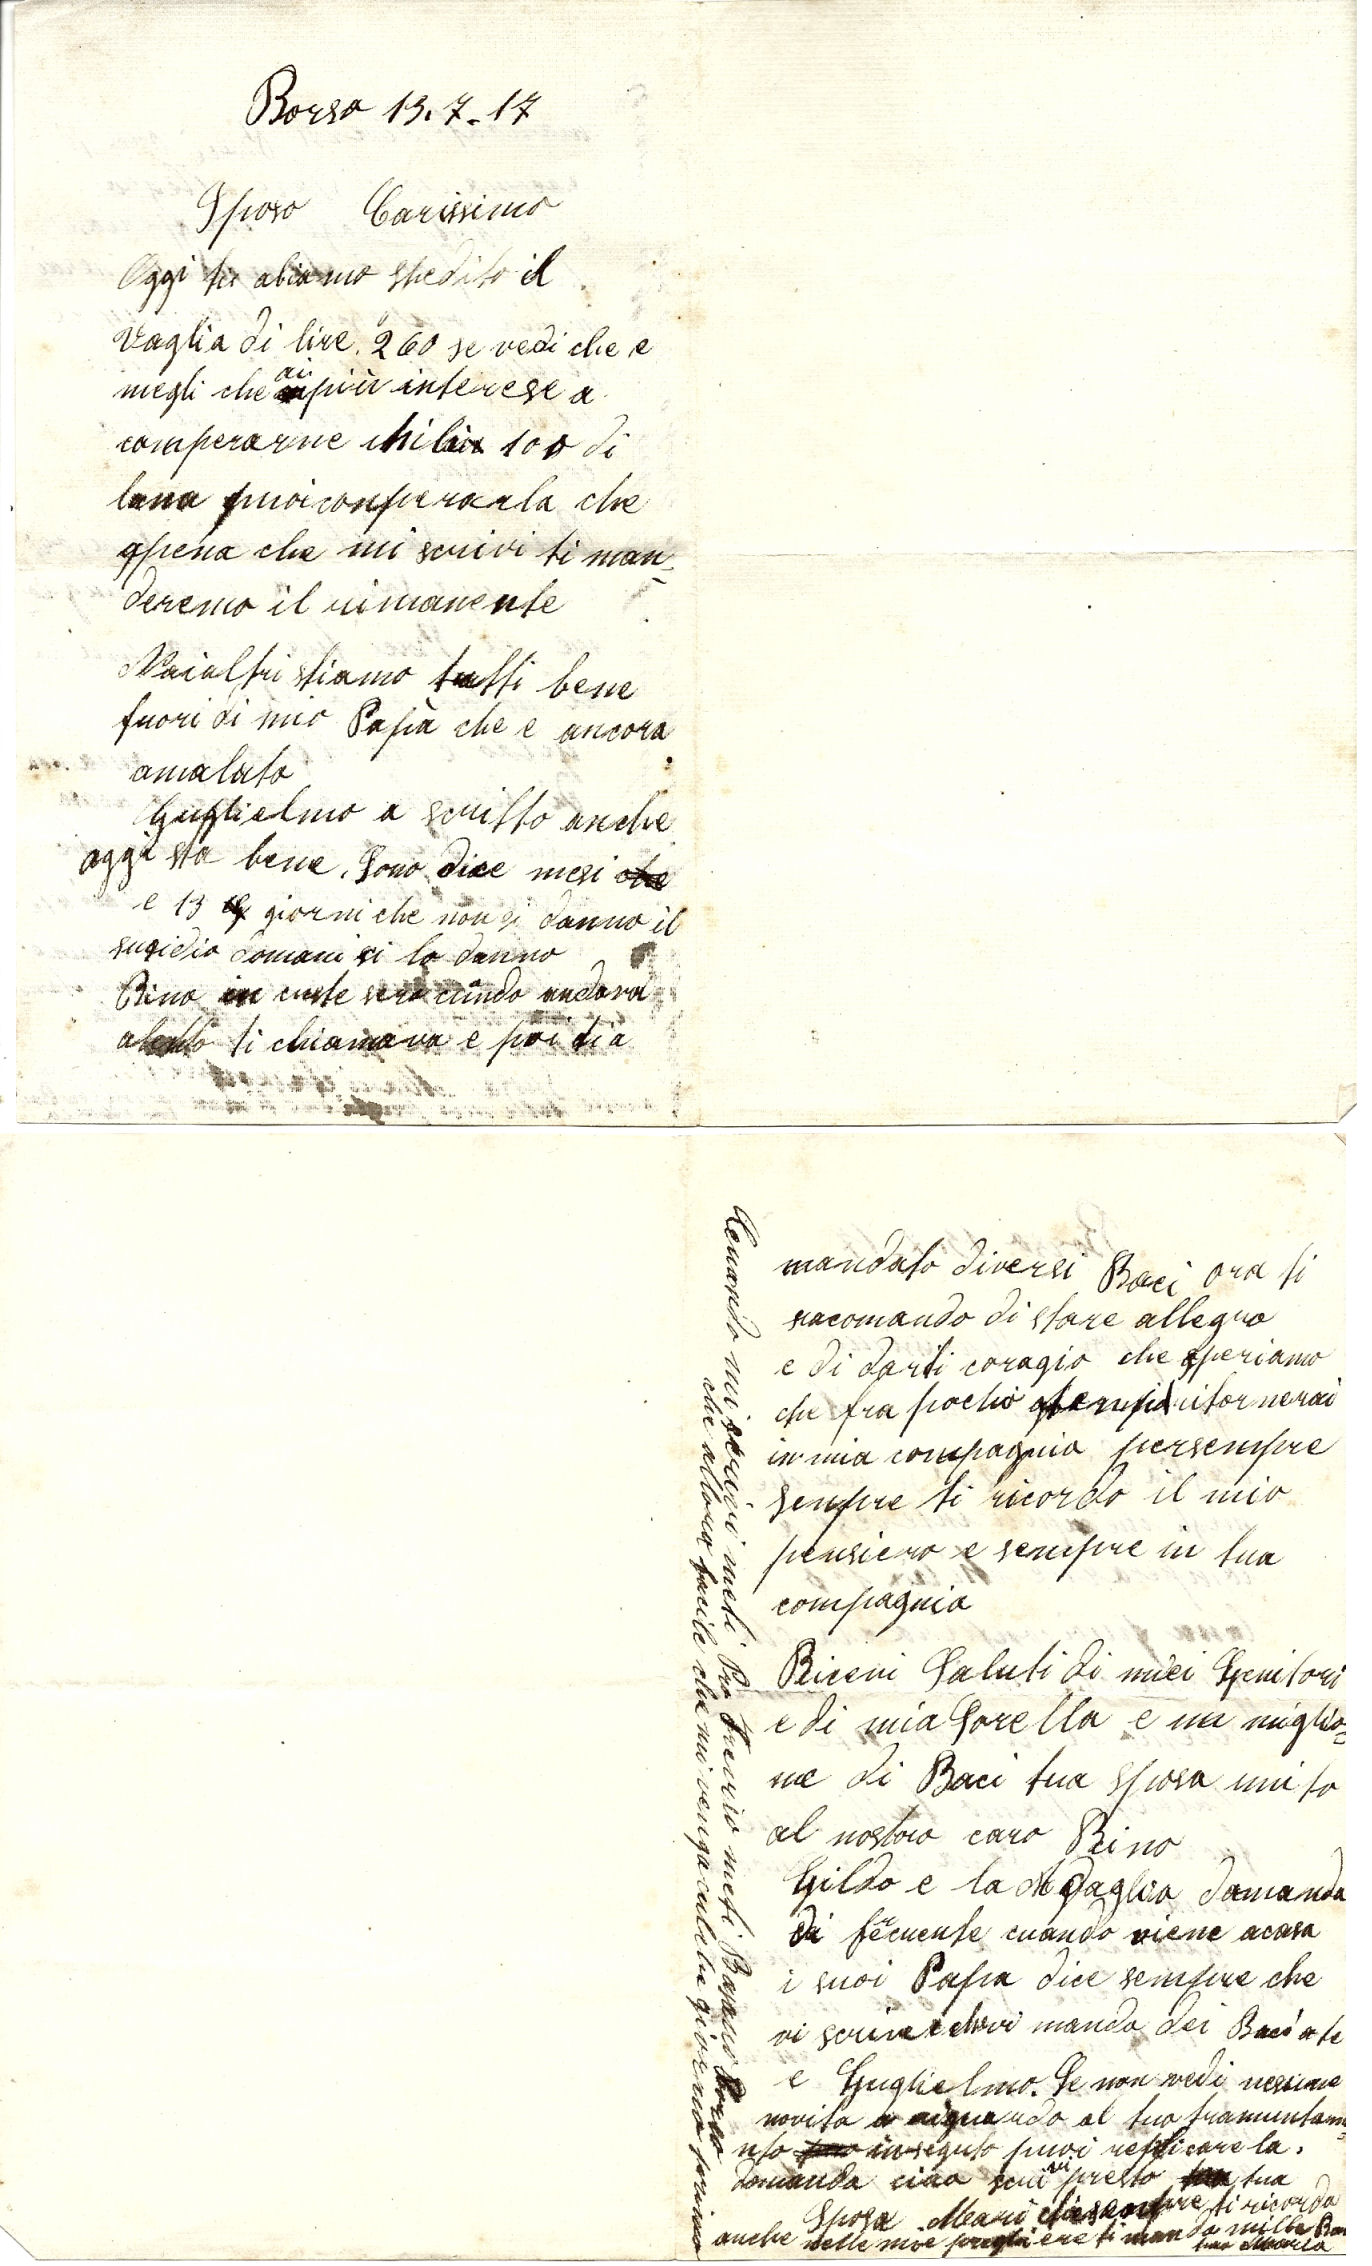 Borso 13.7.17
Sposo Carissimo
Oggi ti abiamo spedito il
vaglia di lire 260 se vedi che e
megli che ai più interese a
comperarne chili 100 di
lana puoi conperarla che
apena che mi scrivi ti man-
deremo il rimanente
Noialtri stiamo tutti bene
fuori di mio Papà che e ancora
amalato
Guglielmo a scritto anche
oggi sta bene. Sono dice mesi che
e 13 giorni che non si danno il
susidio domani si lo danno
Rino in custe sera cundo andava
aletto ti chiamava e poi tia
mandato diversi Baci ora ti
racomando di stare allegro
e di darti coragio che speriamo
che fra pocho tempo ritornerai
in mia compagnia persempre
senpre ti ricordo il mio
pensiero e sempre in tua
compagnia
Ricevi Saluti di miei Genitori
e di mia Sorella e un miglio=
ne di Baci tua sposa unito
al nostro caro Rino
Gildo e la domanda
di frecuente cuando viene acasa
i suoi Papa dice sempre che
vi scrive che vi manda dei Baci a te
e Guglielmo. Se non vedi nessune
novita a riguardo al tuo tramuntam=
nto inseguto puoi replicare la
domanda ciao scrivi presto tua
Sposa Maria che senpre ti ricorda
anche nelle mie preghiere ti mando mille Baci
tua Maria
Cuando mi scrivi meti Pro Treviso meti Basano Borso
che allora facile che mi venga culche giorno prima